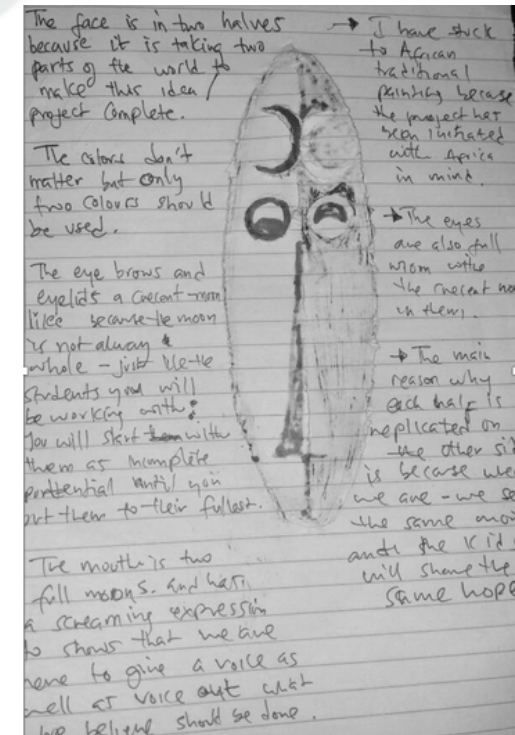 The face is in two halves
because it is taking two
parts of the world to
make this idea/
project complete.
The colours don't
matter but only
two colours should
be used.
The eye brows and
eyelids a crecent-moon
like because the moon
is not always
whole – just like the
students you will
be working with.
You will start with
them as incomplete
until you
put them to their fullest.
The mouth is two
full moons. and has
a screaming expression
to shows that we are
here to give a voice as
well as voice out what
we believe should be done.
→ I have stuck
to African
traditional
painting because
the project has
been initiated
with Africa
in mind.
→ The eyes
are also full
moon with
the crecent
in them.
→ The main
reason why
each half is
replicated on
the other
is because
we are – we
the same
and the kids
will share the
same hope